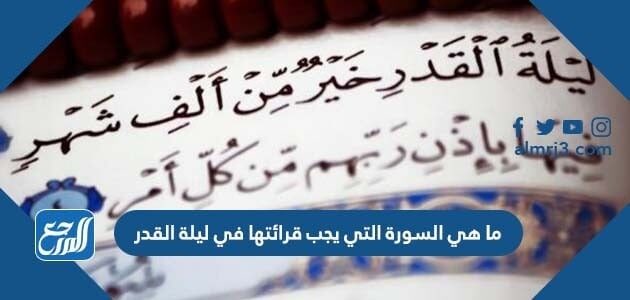 لَيْلَةُ ٱلْقَدْرِ خَيْرٌ مِّنْ أَلْفِ شَهْرٍ
فِيهَا بِإِذْنِ رَبِّهِم مِّن كُلِّ أَمْرٍ
almrj3.com
ما هي السورة التي يجب قرائتها في ليلة القدر
المرجع